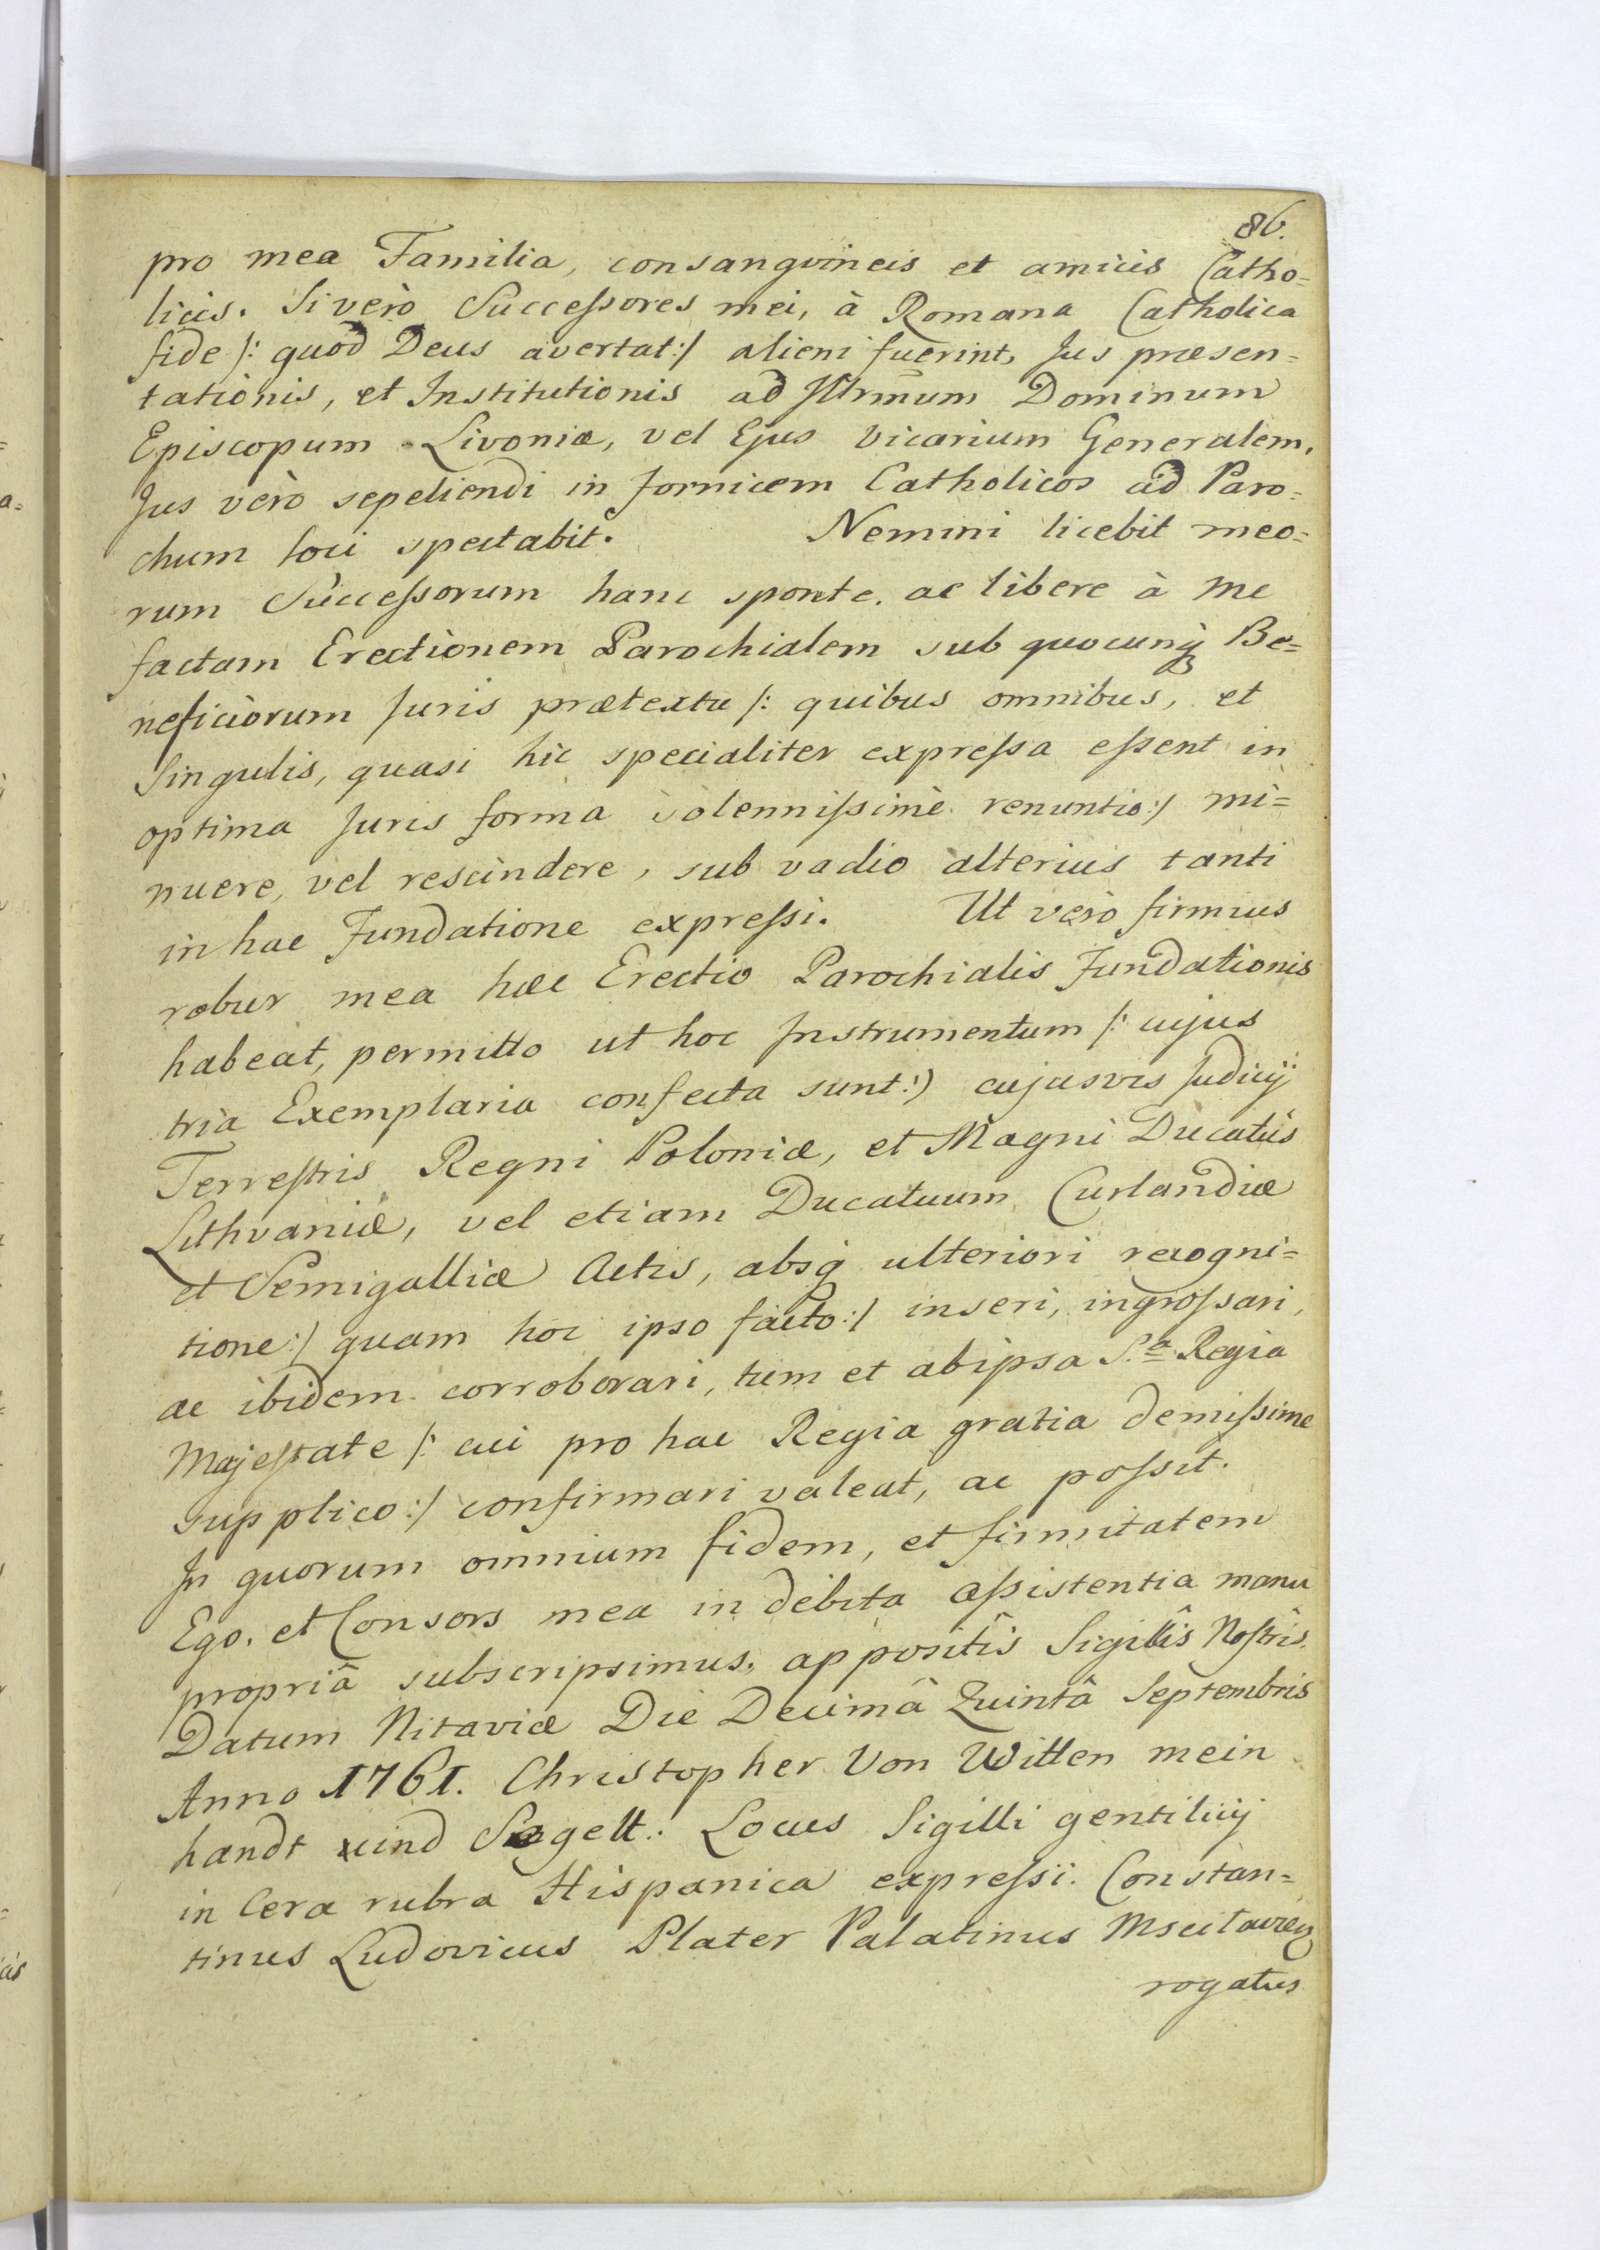 86.
pro mea Familia, consangvineis et amicis Catho=
licis. Si verò Successores mei, à Romana Catholica
fide /: quod Deus avertat :/ alieni fuerint, Jus præsen=
tationis, et Institutionis ad Illrmum Dominum
Episcopum Livoniæ, vel Ejus Vicarium Generalem,
Jus verò sepeliendi in fornicem Catholicos ad Paro=
chum loci spectabit. Nemini licebit meo=
rum Successorum hanc sponte. ac libere à me
factam Erectionem Parochialem sub quocunq Be=
neficiorum Juris prætextu /: quibus omnibus, et
Singulis, quasi hic specialiter expressa essent in
optima Juris forma solennissimè renuntio :/ mi=
nuere, vel rescindere, sub vadio alterius tanti
in hac Fundatione expressi. Ut verò firmius
robur mea hæc Erectio Parochialis Fundationis
habeat, permitto ut hoc Instrumentum /: cujus
tria Exemplaria confecta sunt :) cujusvis Judicij
Terrestris Regni Poloniæ, et Magni Ducatûs
Lithvaniæ, vel etiam Ducatuum Curlandiæ
et Semigalliæ Actis, absq ulteriori recogni=
tione :/ quam hoc ipso facto :/ inseri, ingrossari,
ac ibidem corroborari, tum et ab ipsa S.a Regia
Majestate /: cui pro hac Regia gratia demissime
supplico :/ confirmari valeat, ac possit.
In quorum omnium fidem, et firmitatem
Ego. et Consors mea in debita assistentia manu
propriâ subscripsimus, appositîs Sigillîs Nostrîs.
Datum Mitaviæ Die Decimâ Quintâ Septembris
Anno 1761. Christopher Von Witten mein
handt und Segell.: Locus Sigilli gentilicij
in Cera rubra Hispanica expressi. Constan=
tinus Ludovicus Plater Palatinus Mscitavien
rogatus